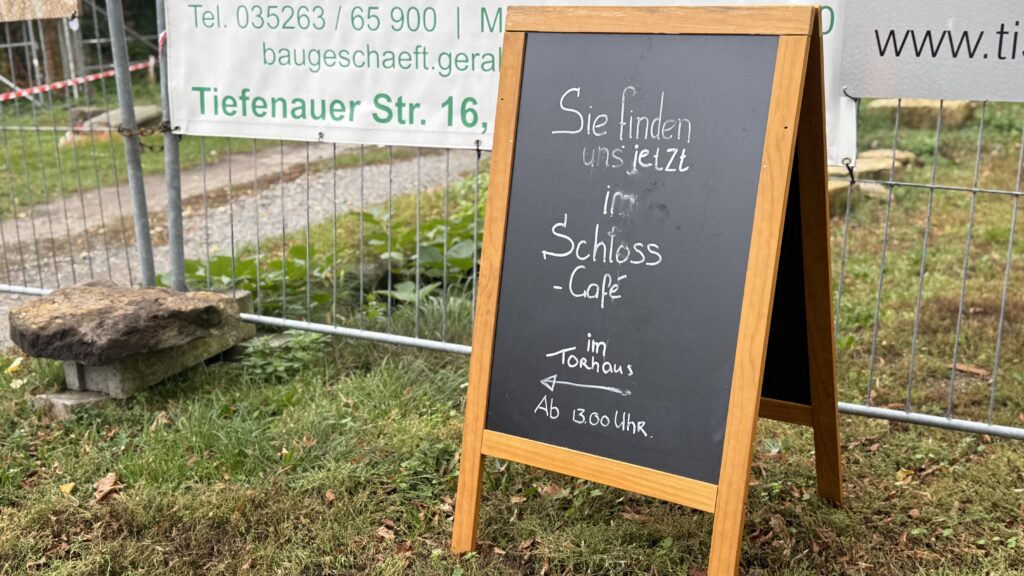 Tel. 035263 / 65 900 | M
baugeschaeft.geral
Tiefenauer Str. 16,
www.tis
Sie finden
uns jetzt
im
Schloss
-Café
im
Torhaus
Ab 13.00 Uhr.